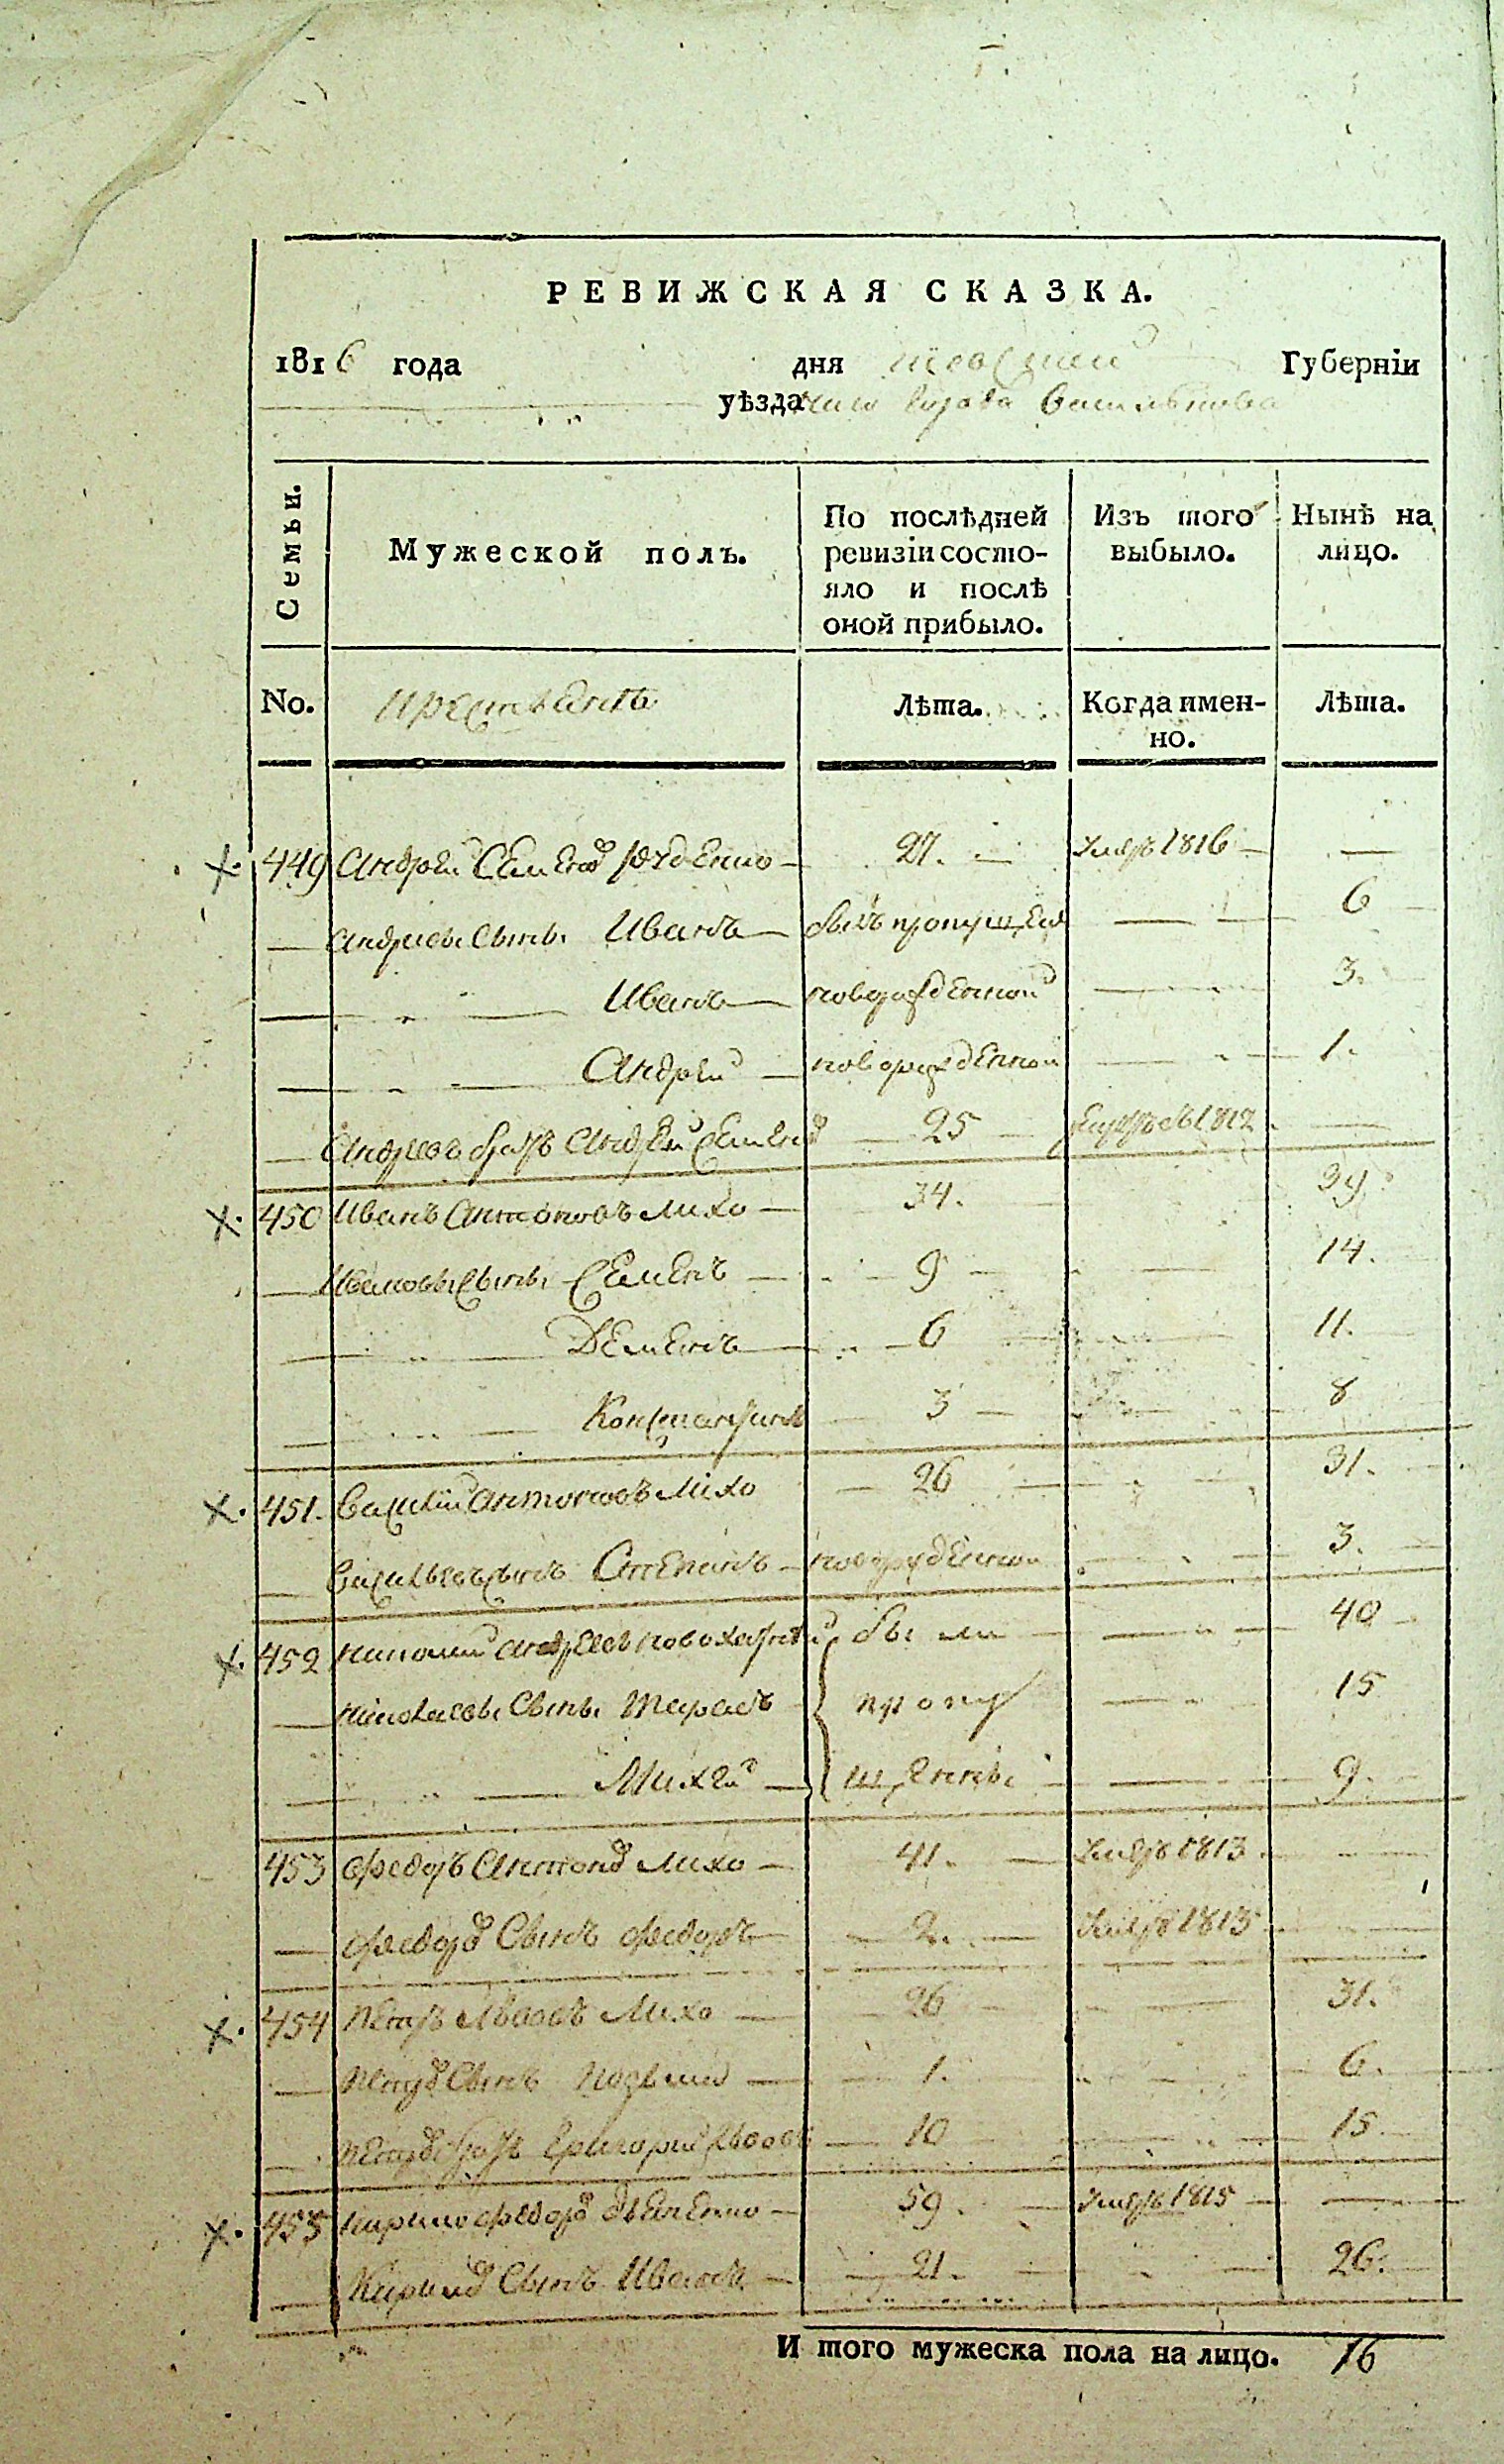 РЕВИЖСКАЯ СКАЗКА.
1816 года дня Губерніи
уѣзда
Семьи. Мужеской полъ. По послѣдней ревизіи состояло и послѣ оной прибыло. Изъ того выбыло. Нынѣ на лицо.
No. Лѣта. Когда именно. Лѣта.
449 Андрей Семенов 27. — Умеръ 1816 — —
— Андреевы сыны Иванъ — былъ пропущен — 6
— Иванъ — новорожденной — 3.
— Андрей — новорожденной — 1.
— Андреевъ братъ Андрей Семенов — 25 — 1812 —
450 Иванъ Антоновъ Лихо — 34. 39.
— Ивановы сыны Семенъ — 9 — 14.
— Дементъ — 6 — 11.
— Константинъ 3 — 8
451. Василій Антоновъ Лихо — 26 — 31.
— Васильевъ сынъ Степанъ — новорожденной — 3.
452 Андреевъ были — 40
— Николаевы сыны Тарасъ пропу — 15
— Михей — щенны — 9.
453 Федоръ Антонов Лихо — 41. — Умеръ 1813 —
— Федоров сынъ Федоръ — 2. — Умеръ 1813 —
454 Петръ Львовъ Лихо — 26 — 31.
— Петров сынъ — 1. — 6.
— Петров братъ Григорий Львовъ — 10 — 15
455 Кирило Федоров — 59. — Умеръ 1815 — —
— Кирилов сынъ Иванъ — 21. — 26.
И того мужеска пола на лицо. 16